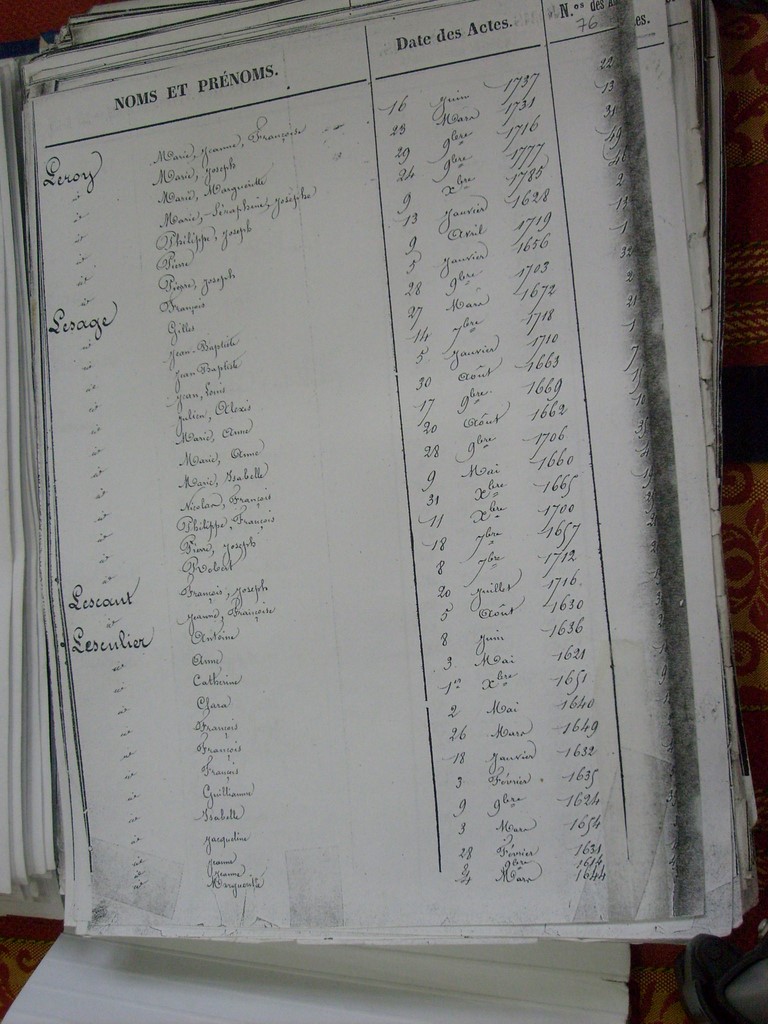 NOMS ET PRÉNOMS. Date des Actes. N.os des
76
Leroy Marie, Jeanne, Françoise 16 Juin 1737 22
id Marie, Joseph 23 Mars 1731 13
id Marie, Marguerite 29 9bre 1716 31
id Marie, Séraphine, Josephe 24 9bre 1777 49
id Philippe, Joseph 9 Xbre 1785
id Pierre 13 Janvier 1628 2
id Pierre, Joseph 9 Avril 1719 13
Lesage François 5 Janvier 1656 1
id Gilles 28 9bre 1703 32
id Jean-Baptiste 27 Mars 1672 2
id Jean Baptiste 14 7bre 1718 21
id Jean, Louis 5 Janvier 1710 1
id Julien, Alexis 30 Août 1663 7
id Marie, Anne 17 9bre 1669
id Marie, Anne 20 Août 1662
id Marie, Isabelle 28 9bre 1706
id Nicolas, François 9 Mai 1660
id Philippe, François 31 Xbre 1665
id Pierre, Joseph 11 Xbre 1700
id Robert 18 7bre 1657
Lescaut François, Joseph 8 7bre 1712
id Jeanne, Françoise 20 Juillet 1716
Lesculier Antoine 5 Août 1630
id Anne 8 Juin 1636
id Catherine 3 Mai 1621
id Clara 1er Xbre 1651
id François 2 Mai 1640
id François 26 Mars 1649
id François 18 Janvier 1632
id Guillianne 3 Février 1635
id Isabelle 9 9bre 1624
id Jacqueline 3 Mars 1654
id Jeanne 28 Février 1631
id Jeanne 2 9bre 1614
id Marguerite 4 Mars 1644